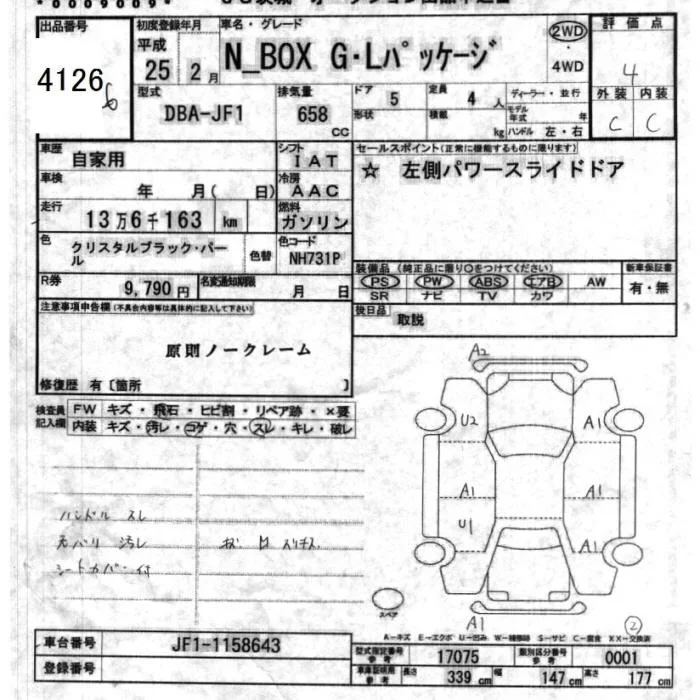 出品番号
4126
初度登録年月
平成
25 2月
車名・グレード
N_BOX G・Lパッケージ
2WD・4WD
評価点
4
外装 内装
C C
型式
DBA-JF1
排気量
658 CC
ドア 5
定員 4人
ディーラー・並行
形状
積載 kg
モデル年式 年
ハンドル 左・右
車歴
自家用
シフト
IAT
セールスポイント(正常に機能するものに限ります)
☆ 左側パワースライドドア
車検
年 月( 日)
冷房
AAC
走行
13万6千163 km
燃料
ガソリン
色
クリスタルブラック・パール
色替
色コード
NH731P
装備品(純正品に限り○をつけてください)
新車保証書
PS PW ABS エアB AW
SR ナビ TV カワ
有・無
R券
9,790円
名変通知期限
月 日
後日品
取説
注意事項申告欄(不具合内容等は具体的に記入して下さい)
原則ノークレーム
修復歴 有〔箇所 〕
検査員記入欄
FW キズ・飛石・ヒビ割・リペア跡・×要
内装 キズ・汚レ・コゲ・穴・スレ・キレ・破レ
A2
U2 A1
A1 A1
U1
A1
A1
ハンドル スレ
天バリ 汚レ
シートカバー付
スペア
②
A-キズ E-エクボ U-凹み W-補修跡 S-サビ C-腐食 XX-交換済
車台番号
JF1-1158643
登録番号
型式指定番号 参考
17075
類別区分番号 参考
0001
車庫証明用 参考
長さ 339 cm 幅 147 cm 高さ 177 cm